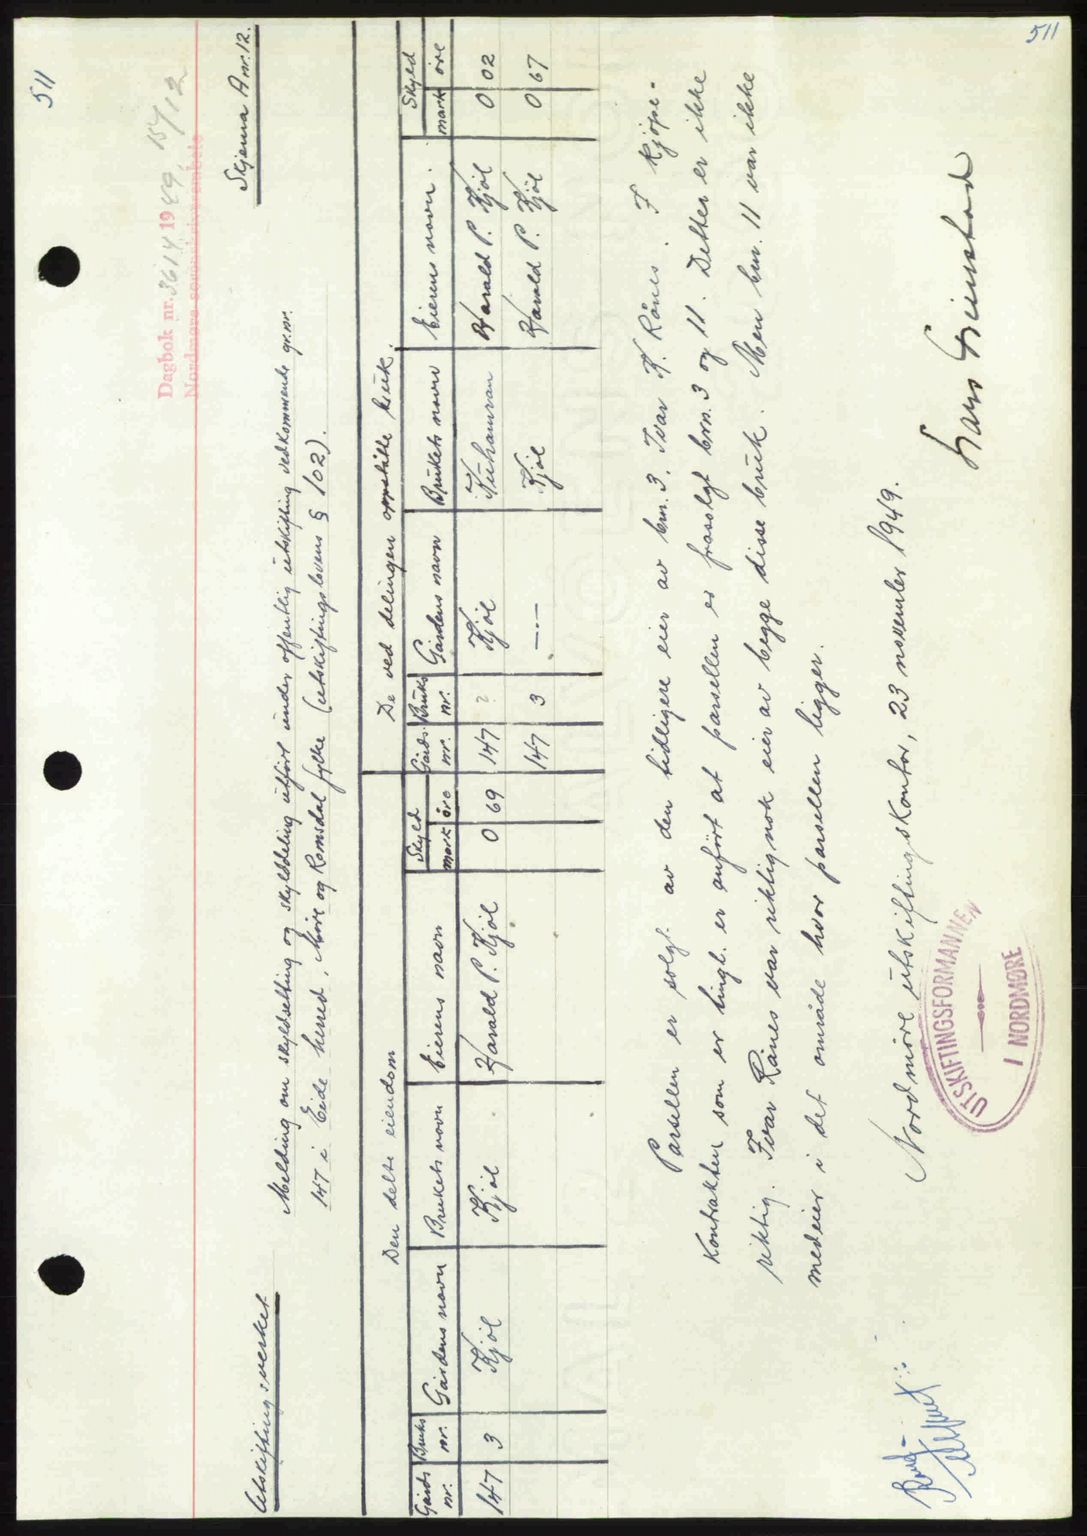 511
511
Dagbok nr. 3614 1949, 15/12
Nordmøre sorenskriverembete
Utskiftingsverket
Skjema A nr. 12.
Melding om skyldsetting og skylddeling utført under offentlig utskifting vedkommende gr.nr.
147 i Eide herred, Møre og Romsdal fylke (utskiftingslovens § 102).
Den delte eiendom
De ved delingen oppståtte bruk.
Gårds nr. Bruks nr. Gårdens navn Brukets navn Eierens navn Skyld mark øre Gårds nr. Bruks nr. Gårdens navn Brukets navn Eierens navn. Skyld mark øre
147 3 Kjøl Kjøl Harald P. Kjøl 0 69 147 ? Kjøl Harald P. Kjøl 0 02
147 3 —"— Kjøl Harald P. Kjøl 0 67
Parsellen er solgt av den tidligere eier av brn. 3, Ivar K. Rånes. I kjøpe-
kontrakten som er tingl. er anført at parsellen er frasolgt brn. 3 og 11. Dette er ikke
riktig. Ivar Rånes var riktignok eier av begge disse bruk. Men brn. 11 var ikke
medeier i det område hvor parsellen ligger.
Nordmøre utskiftingskontor, 23 november 1949.
UTSKIFTINGSFORMANNEN
I NORDMØRE